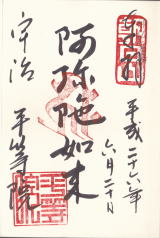 奉拝
平成二十六年
六月二十日
阿弥陀如来
宇治
平等院